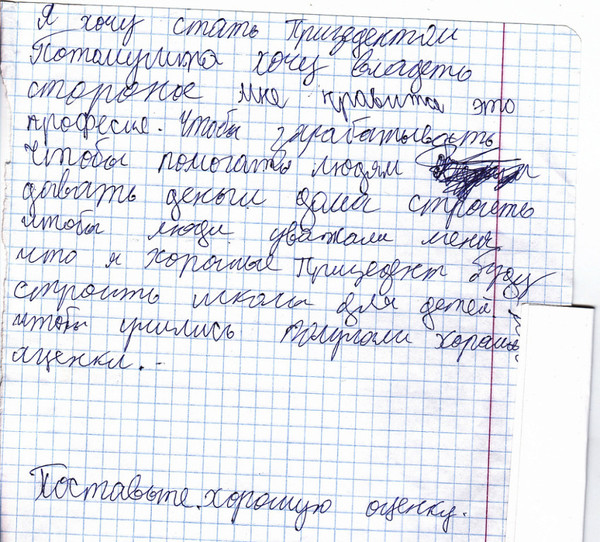 Я хочу стать Призедентом
Потамушта хочу владеть
стороное мне нравитса это
професие. Чтобы зарабатывать
Чтобы помогать людям
давать деньги дома строеть
чтобы люди уважали меня
что я хорошые Призедект буду
строить школы для детей.
чтобы учились получали хорошы
аценки.
Поставьте.хорошую оценку.